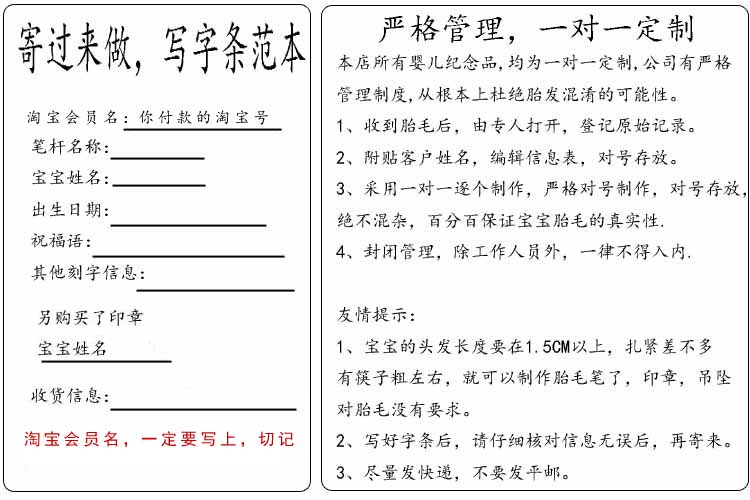 寄过来做，写字条范本
淘宝会员名：你付款的淘宝号
笔杆名称：
宝宝姓名：
出生日期：
祝福语：
其他刻字信息：
另购买了印章
宝宝姓名
收货信息：
淘宝会员名，一定要写上，切记
严格管理，一对一定制
本店所有婴儿纪念品,均为一对一定制,公司有严格
管理制度,从根本上杜绝胎发混淆的可能性。
1、收到胎毛后，由专人打开，登记原始记录。
2、附贴客户姓名，编辑信息表，对号存放。
3、采用一对一逐个制作，严格对号制作，对号存放，
绝不混杂，百分百保证宝宝胎毛的真实性.
4、封闭管理，除工作人员外，一律不得入内.
友情提示：
1、宝宝的头发长度要在1.5CM以上，扎紧差不多
有筷子粗左右，就可以制作胎毛笔了，印章，吊坠
对胎毛没有要求。
2、写好字条后，请仔细核对信息无误后，再寄来。
3、尽量发快递，不要发平邮。